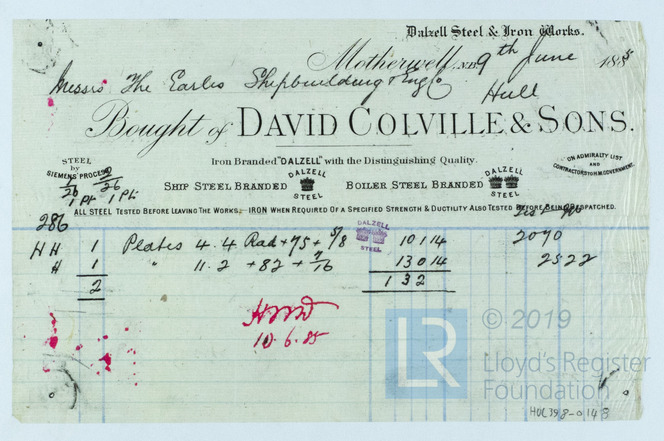 Dalzell Steel & Iron Works.
Motherwell, N.B. 9th June 1885
Messrs The Earles Shipbuilding & Eng Co
Hull
Bought of DAVID COLVILLE & SONS.
STEEL BY SIEMENS' PROCESS
Iron Branded "DALZELL" with the Distinguishing Quality.
ON ADMIRALTY LIST AND CONTRACTORS TO H.M. GOVERNMENT.
SHIP STEEL BRANDED DALZELL STEEL BOILER STEEL BRANDED DALZELL STEEL
26 26
1 Pt 1 Pt
ALL STEEL TESTED BEFORE LEAVING THE WORKS. IRON WHEN REQUIRED OF A SPECIFIED STRENGTH & DUCTILITY ALSO TESTED BEFORE BEING DESPATCHED.
286
DALZELL STEEL
HH 1 Plates 4.4 Rad + 75 + 5/8 10 1 14 2090
H 1 " 11.2 + 82 + 7/16 13 0 14 2522
2 1 3 2
10.6.85
LR © 2019
Lloyd's Register
Foundation
HUL398-0148